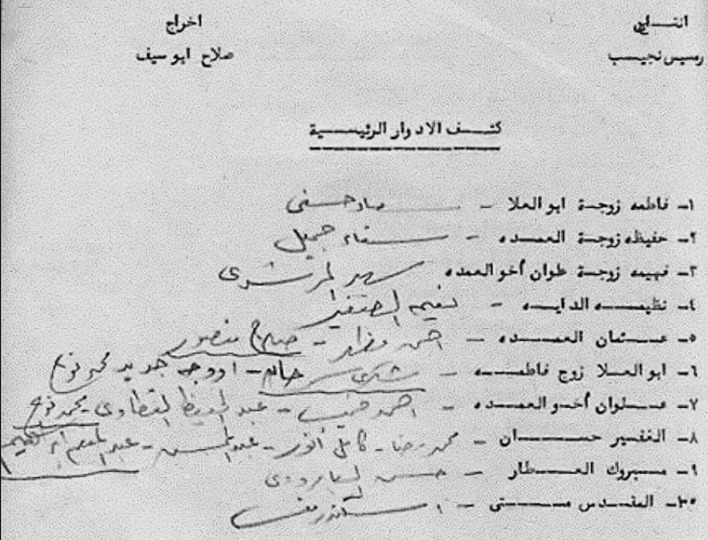 انتاج
رمسيس نجيب
اخراج
صلاح ابو سيف
كشف الادوار الرئيسية
١- فاطمه زوجة ابو العلا - سعاد حسنى
٢- حفيظه زوجة العمده - سناء جميل
٣- فهيمه زوجة علوان أخو العمده سهير المرشدى
٤- نظيمه الدايه - نعيمه الصغير
٥- عثمان العمده - احمد مظهر - صلاح منصور
٦- ابو العلا زوج فاطمه - شكرى سرحان - او وجه جديد
٧- علوان أخو العمده - احمد - عبد الحفيظ التطاوى - محمد نوح
٨- الغفير حسان - محمد رضا - كامل أنور - عبد المحسن - عبد المنعم ابراهيم
٩- مبروك العطار - حسن البارودى
١٠- المقدس متى - اسكندر منسى